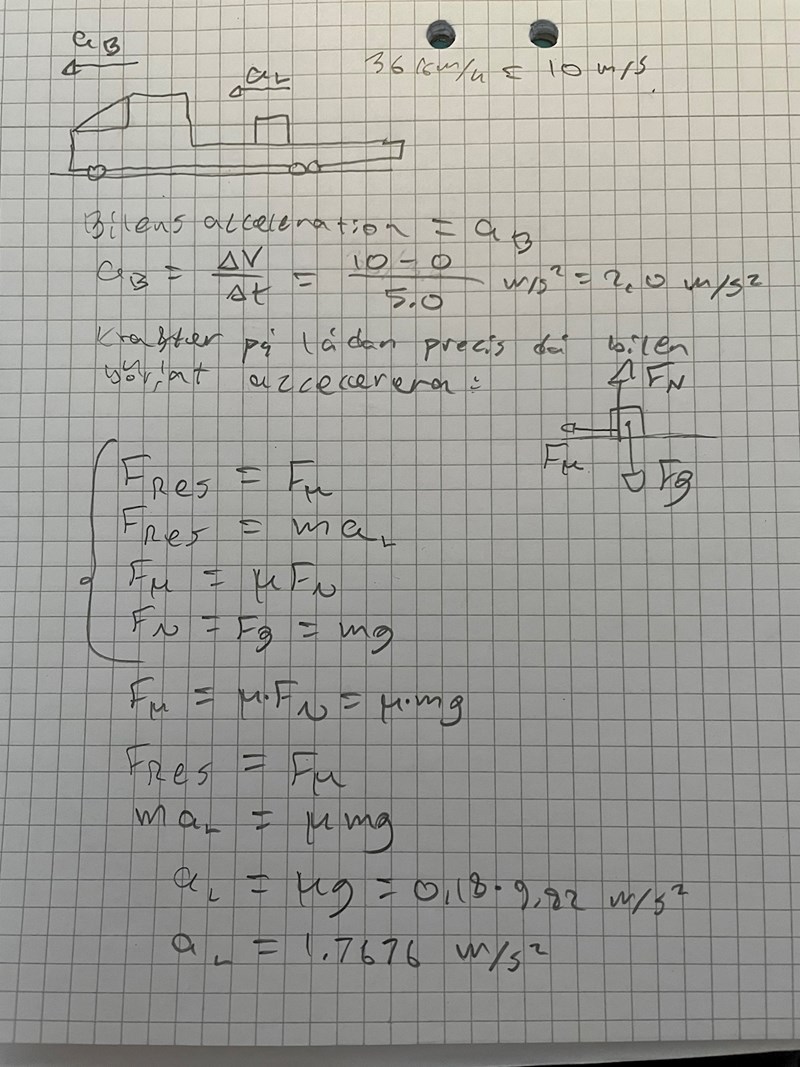 a_B
36 km/h = 10 m/s
a_L
Bilens acceleration = a_B
a_B = ΔV/Δt = (10 - 0)/5.0 m/s² = 2,0 m/s²
Krafter på lådan precis då bilen
börjat accelerera:
F_N
F_μ
F_g
F_Res = F_μ
F_Res = m a_L
F_μ = μ F_N
F_N = F_g = mg
F_μ = μ·F_N = μ·mg
F_Res = F_μ
m a_L = μ mg
a_L = μg = 0,18 · 9,82 m/s²
a_L = 1.7676 m/s²